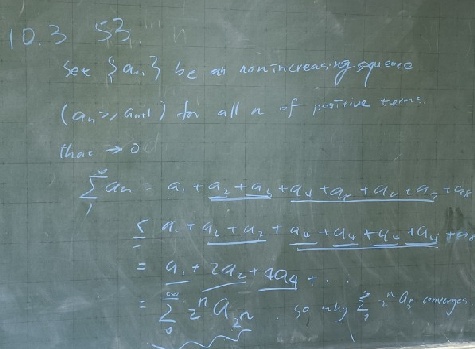 10.3 53.
See {aₙ} be an nonincreasing sequence
(aₙ ≥ aₙ₊₁) for all n of positive terms
that → 0
∑₁^∞ aₙ = a₁ + a₂ + a₃ + a₄ + a₅ + a₆ + a₇ +
≤ a₁ + a₂ + a₂ + a₄ + a₄ + a₄ + a₄ +
= a₁ + 2a₂ + 4a₄ ...
= ∑₀^∞ 2ⁿ a₂ₙ . so why ∑ 2ⁿ converges